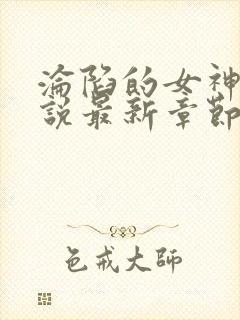 淪陷的女神
說最新章節
色戒大師